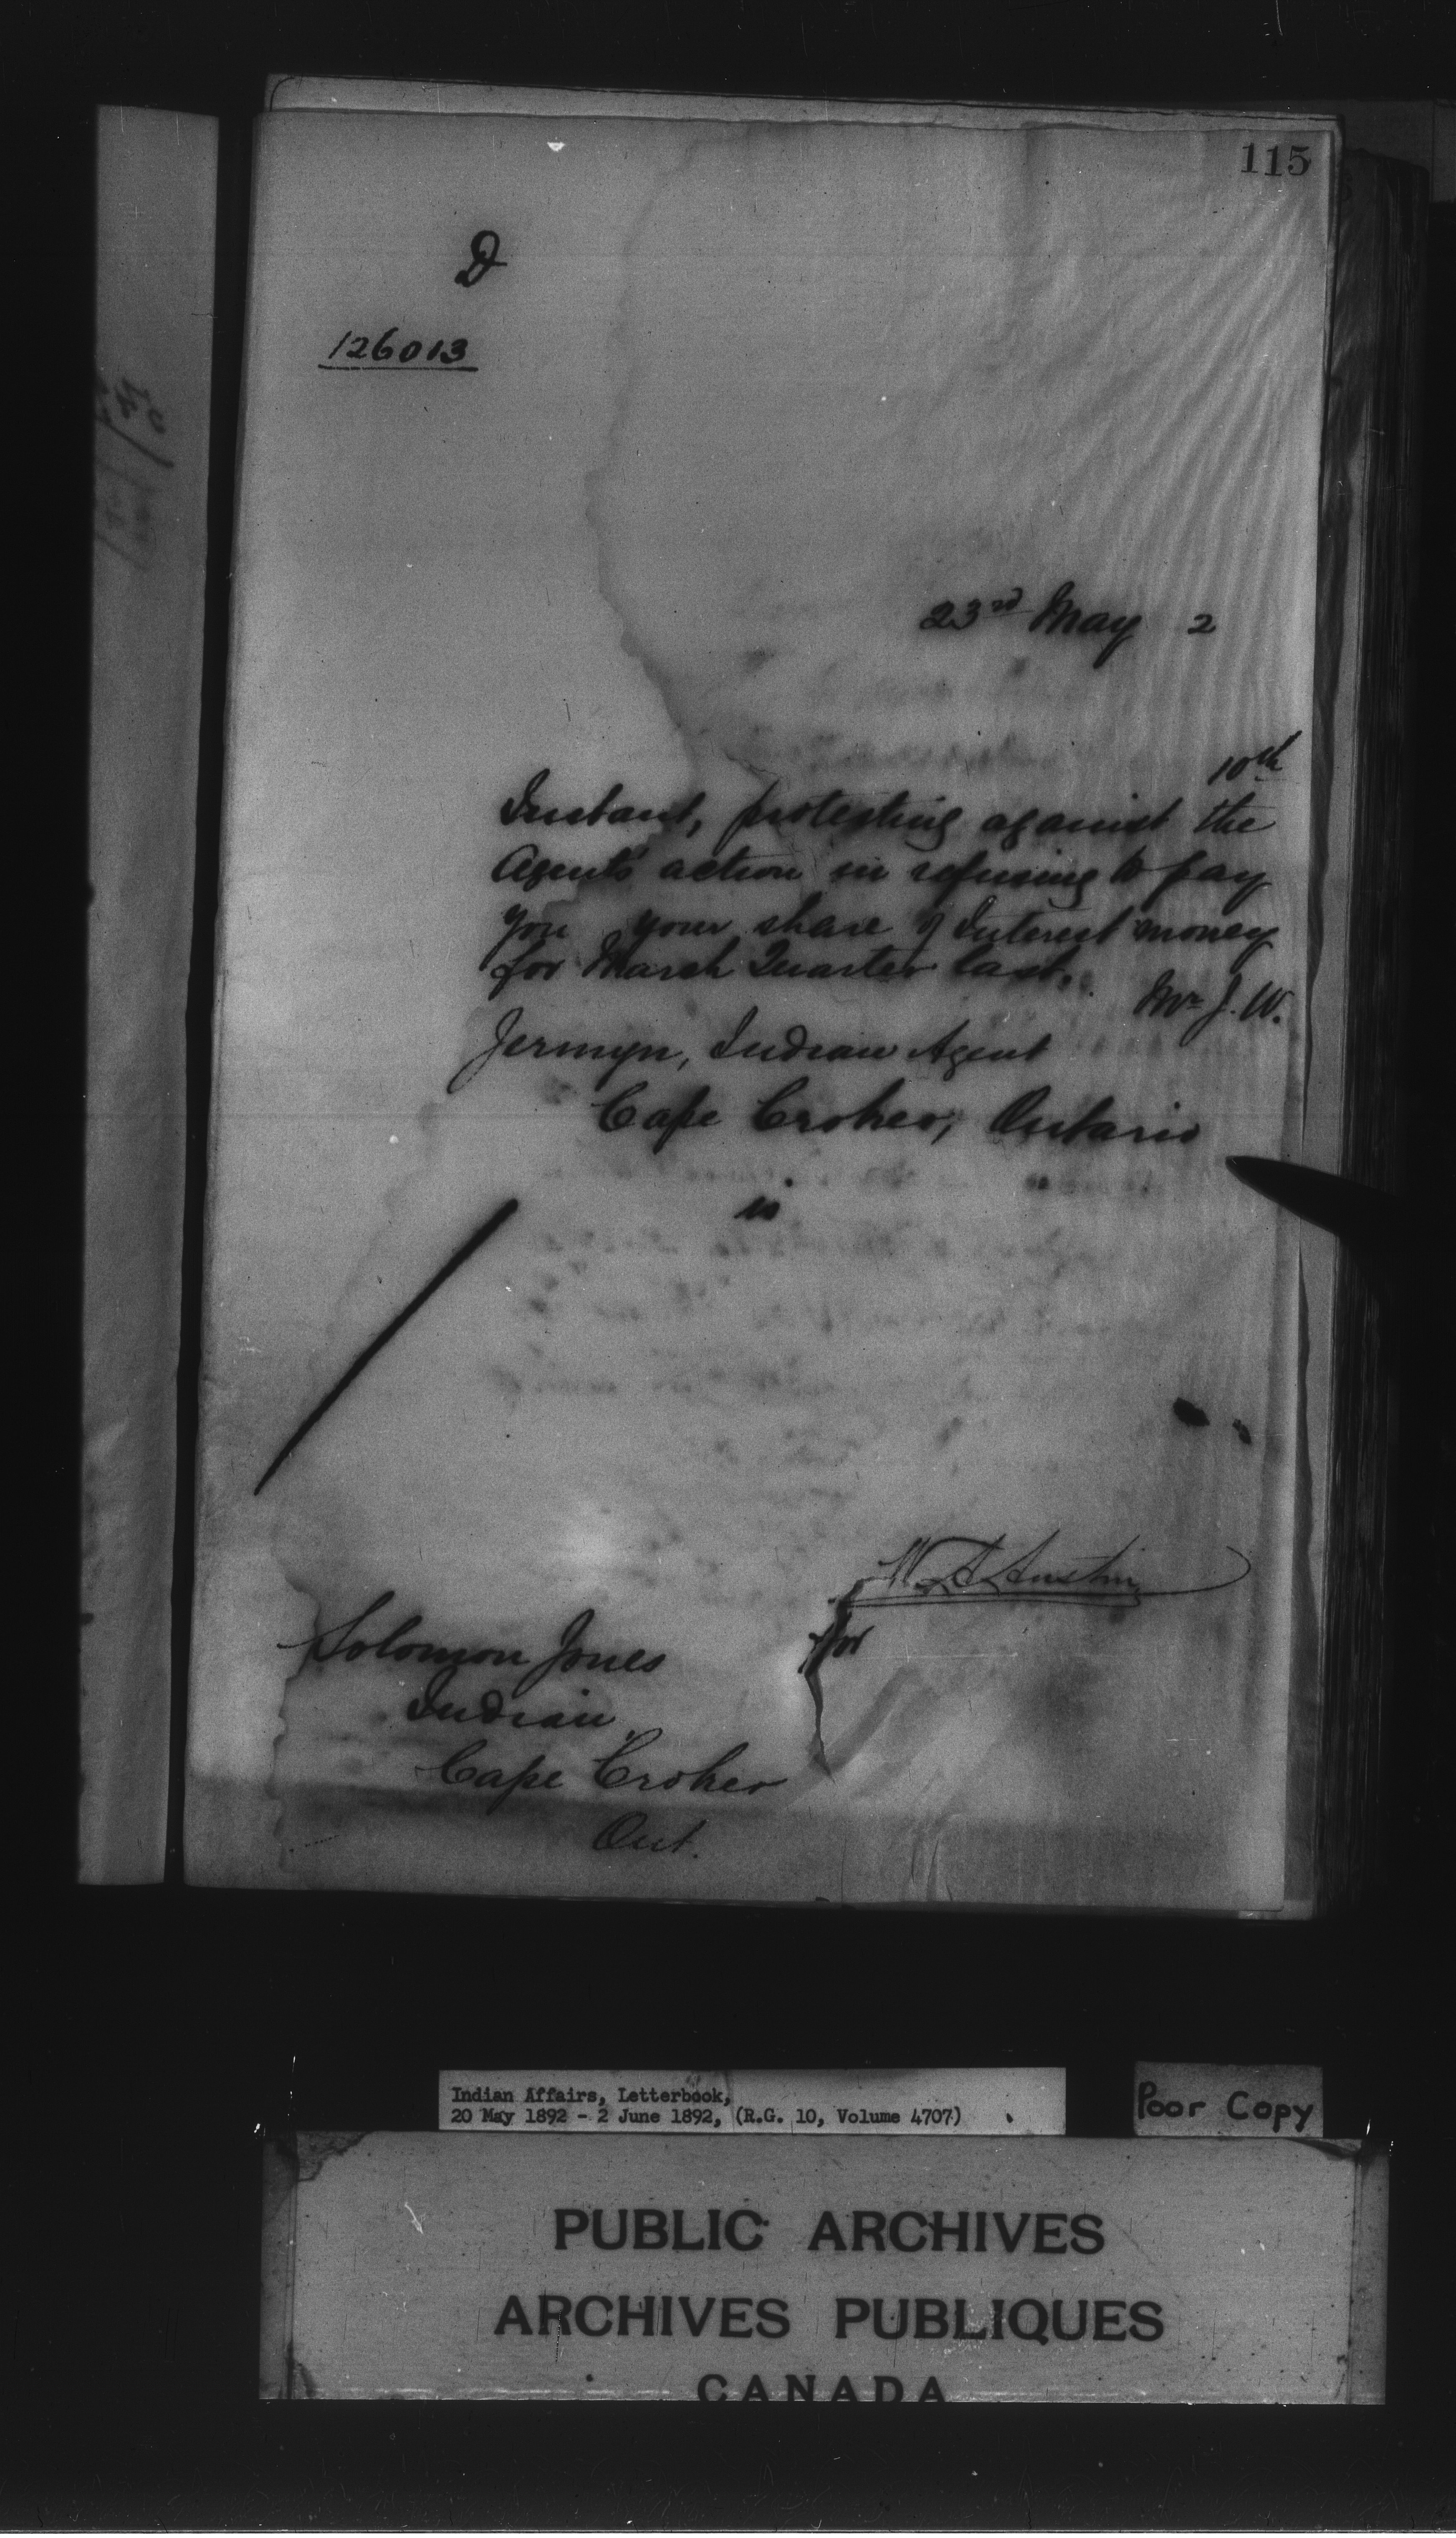 115
D
126013
23rd May 2
10th
Instant, protesting against the
Agent's action in refusing to pay
you your share of Interest money
for March Quarter last.
Mr J. W.
Jermyn, Indian Agent
Cape Croker, Ontario
is
W. A. Austin
for
Solomon Jones
Indian
Cape Croker
Ont.
Indian Affairs, Letterbook,
20 May 1892 - 2 June 1892, (R.G. 10, Volume 4707)
Poor Copy
PUBLIC ARCHIVES
ARCHIVES PUBLIQUES
CANADA